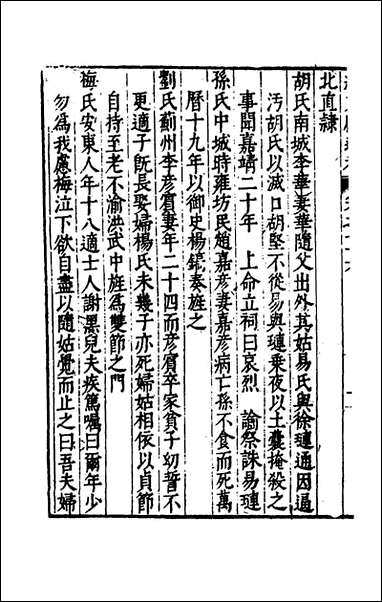 北直隸
胡氏南城李華妻華隨父出外其姑易氏與徐璉通因逼
汚胡氏以滅口胡堅不從易與璉乗夜以土囊掩殺之
事聞嘉靖二十年　上命立祠曰哀烈　諭祭誅易璉
孫氏中城時雍坊民趙嘉彦妻嘉彦病亡孫不食而死萬
曆十九年以御史楊鎬奏旌之
劉氏薊州李彦賓妻年二十四而彦賓卒家貧子幼誓不
更適子旣長娶婦楊氏未幾子亦死婦姑相依以貞節
自持至老不渝洪武中旌爲雙節之門
梅氏安東人年十八適士人謝黒兒夫疾篤囑曰爾年少
勿為我慮梅泣下欲自盡以隨姑覺而止之曰吾夫婦